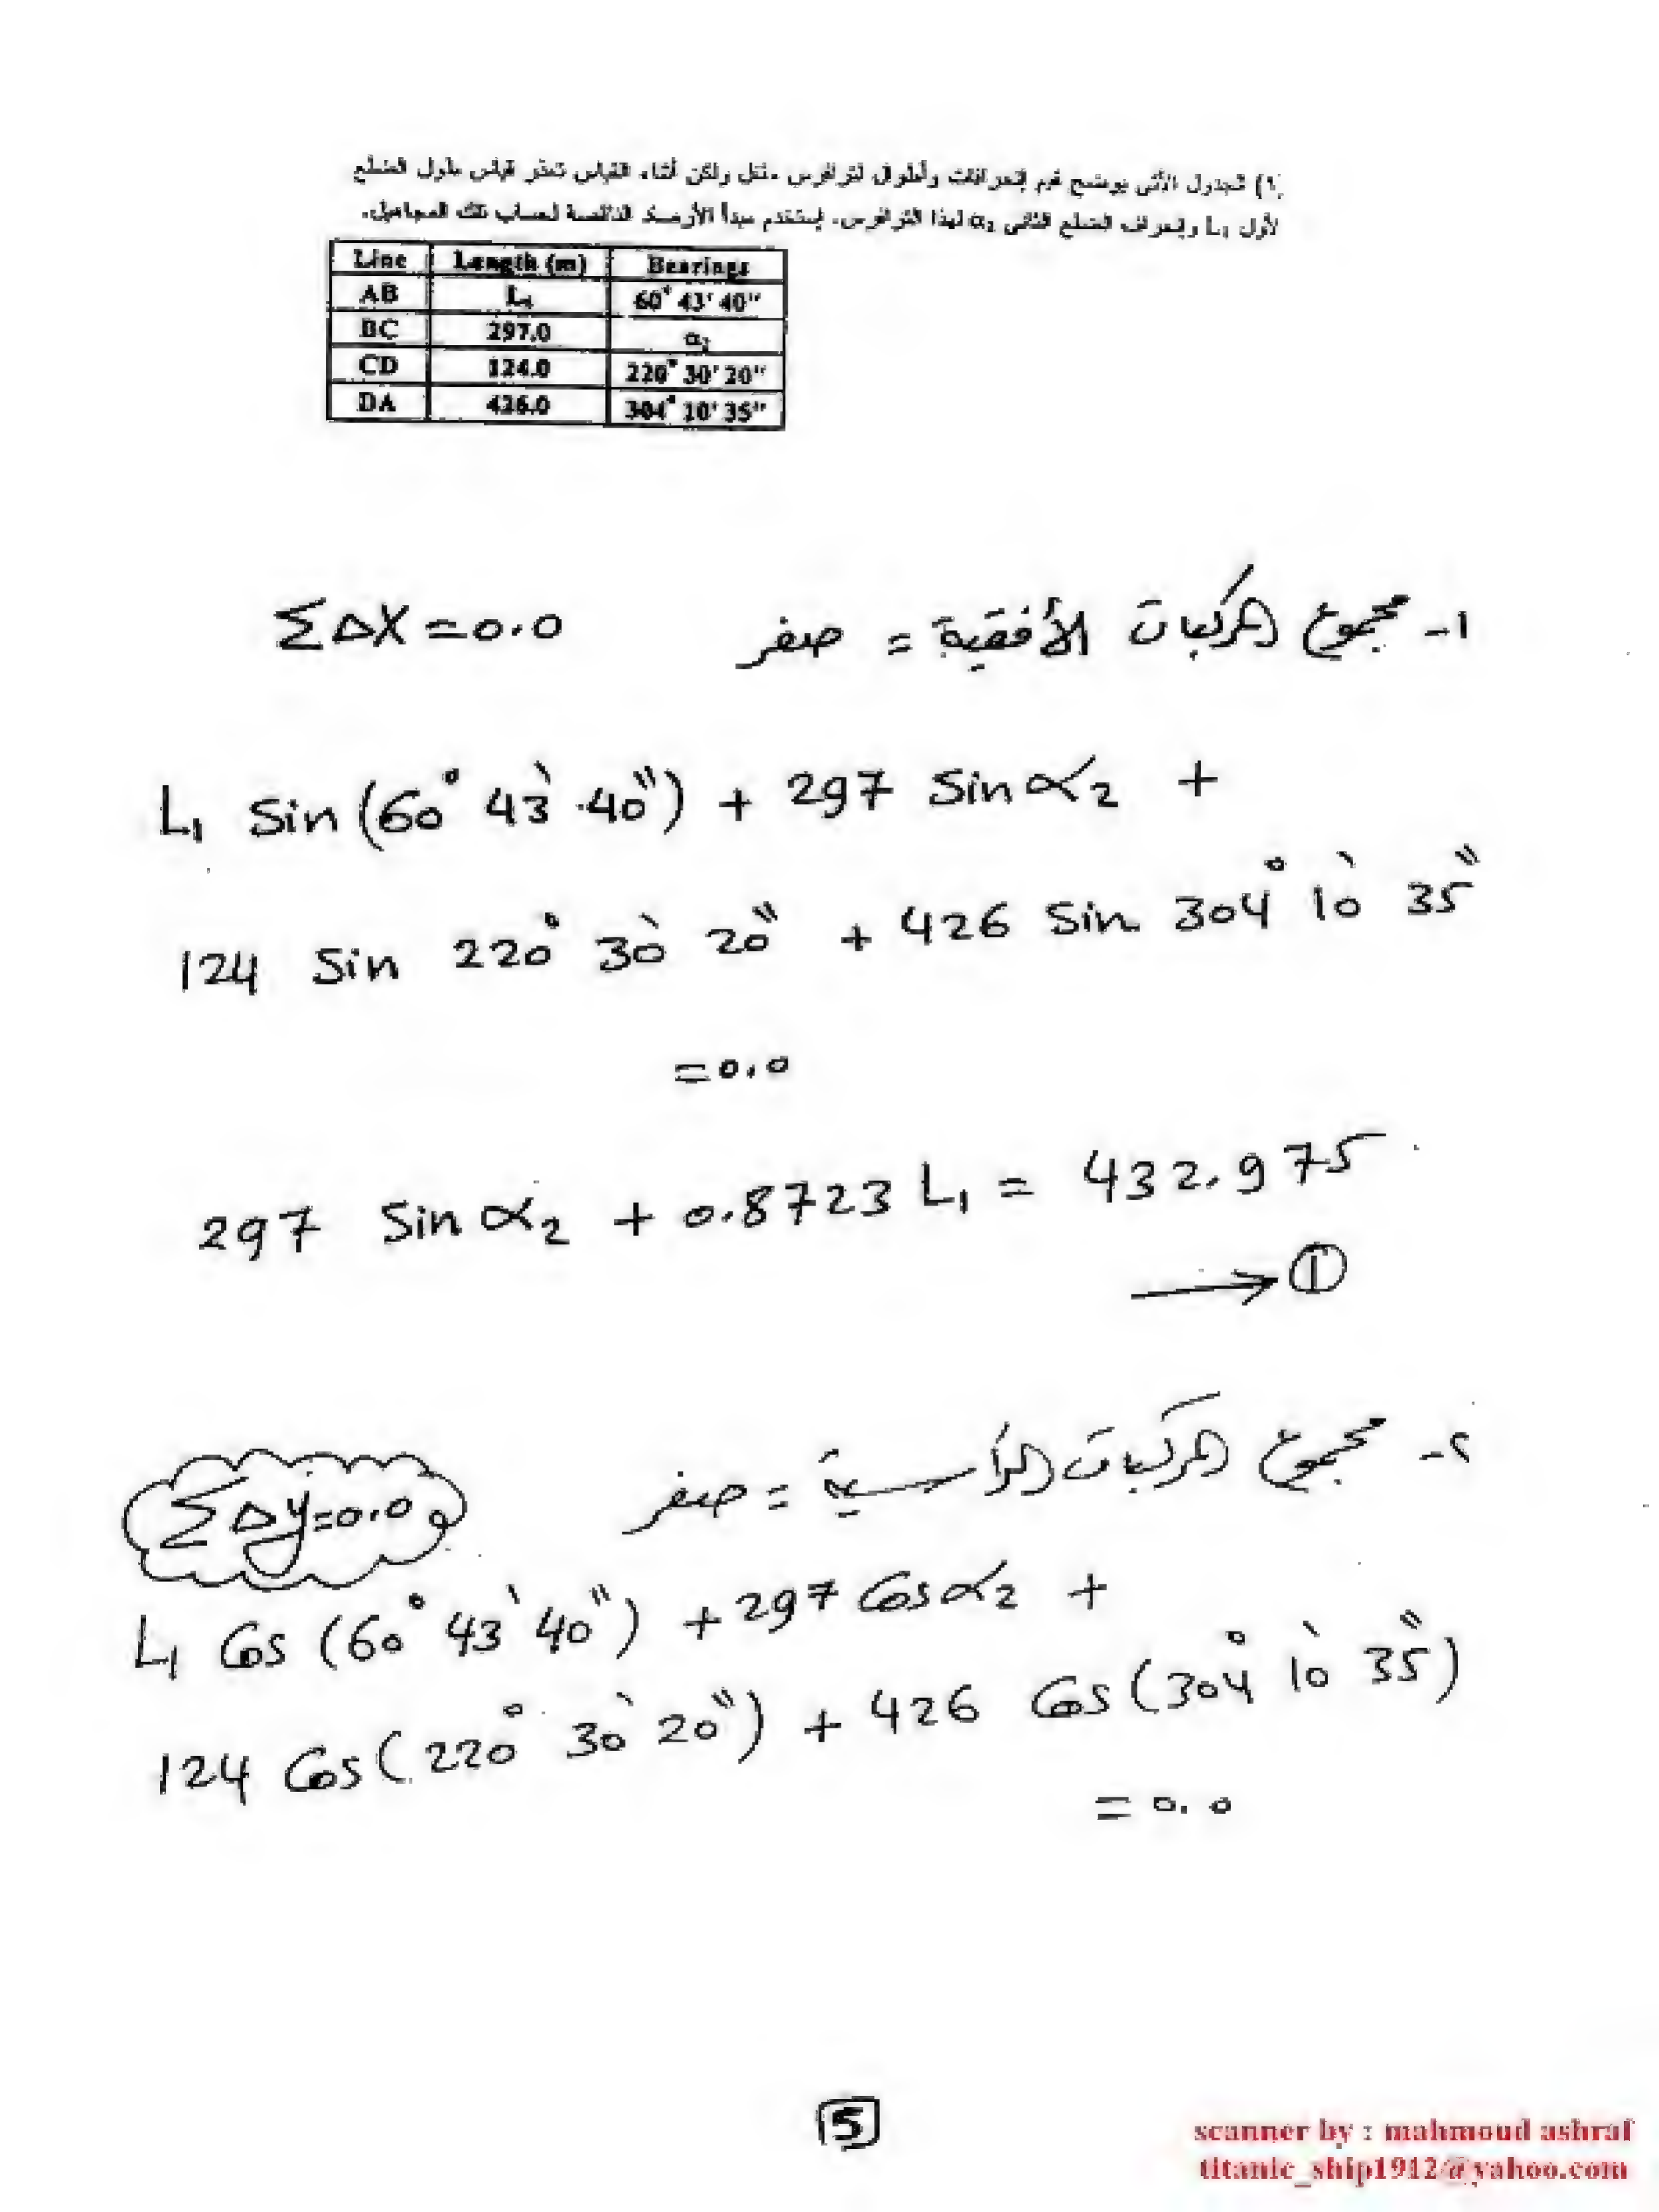 ١) الجدول الآتى يوضح قيم إنحرافات وأطوال لترافرس مقفل ولكن أثناء القياس تعذر قياس طول الضلع
الأول L₁ وإنحراف الضلع الثانى α₂ لهذا الترافرس. إستخدم مبدأ الأرصاد الناقصة لحساب تلك المجاهيل.
Line Length (m) Bearings
AB L₁ 60° 43' 40"
BC 297.0 α₂
CD 124.0 220° 30' 20"
DA 426.0 304° 10' 35"
١- مجموع المركبات الأفقية = صفر ΣΔX = 0.0
L₁ Sin (60° 43' 40") + 297 Sin α₂ +
124 Sin 220° 30' 20" + 426 Sin 304° 10' 35"
= 0.0
297 Sin α₂ + 0.8723 L₁ = 432.975
→ ①
٢- مجموع المركبات الرأسية = صفر ΣΔy = 0.0
L₁ Cos (60° 43' 40") + 297 Cos α₂ +
124 Cos (220° 30' 20") + 426 Cos (304° 10' 35")
= 0.0
5
scanner by : mahmoud ashraf
titanic_ship1912@yahoo.com